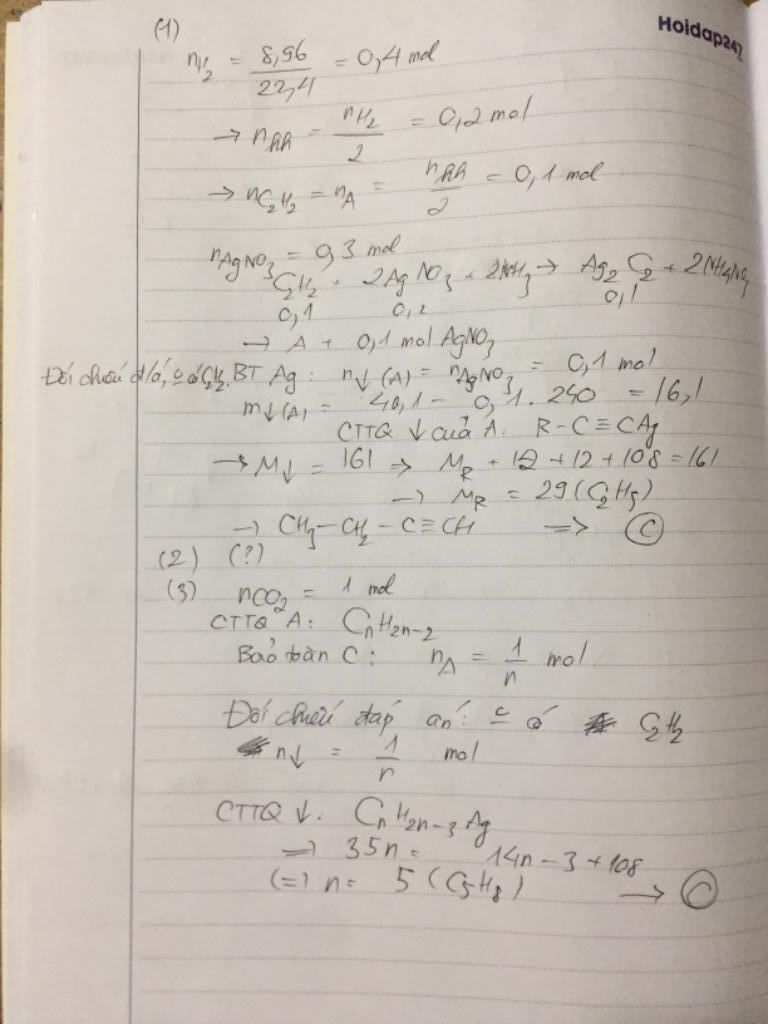 Hoidap247
(1)
nH₂ = 8,96/22,4 = 0,4 mol
→ nAA = nH₂/2 = 0,2 mol
→ nC₂H₂ = nA = nAA/2 = 0,1 mol
nAgNO₃ = 0,3 mol
C₂H₂ + 2AgNO₃ + 2NH₃ → Ag₂C₂ + 2NH₄NO₃
0,1 0,2 0,1
→ A + 0,1 mol AgNO₃
Đối chiếu đ/á, BT Ag: n↓(A) = nAgNO₃ = 0,1 mol
m↓(A) = 40,1 - 0,1.240 = 16,1
CTTQ ↓ của A: R-C≡CAg
→ M↓ = 161 => M_R + 12 + 12 + 108 = 161
→ M_R = 29 (C₂H₅)
→ CH₃-CH₂-C≡CH => C
(2) (?)
(3) nCO₂ = 1 mol
CTTQ A: CnH2n-2
Bảo toàn C: nA = 1/n mol
Đối chiếu đáp án: có C₂H₂
n↓ = 1/n mol
CTTQ ↓: CnH2n-3Ag
=> 35n = 14n-3+108
(=) n = 5 (C₅H₈) → C